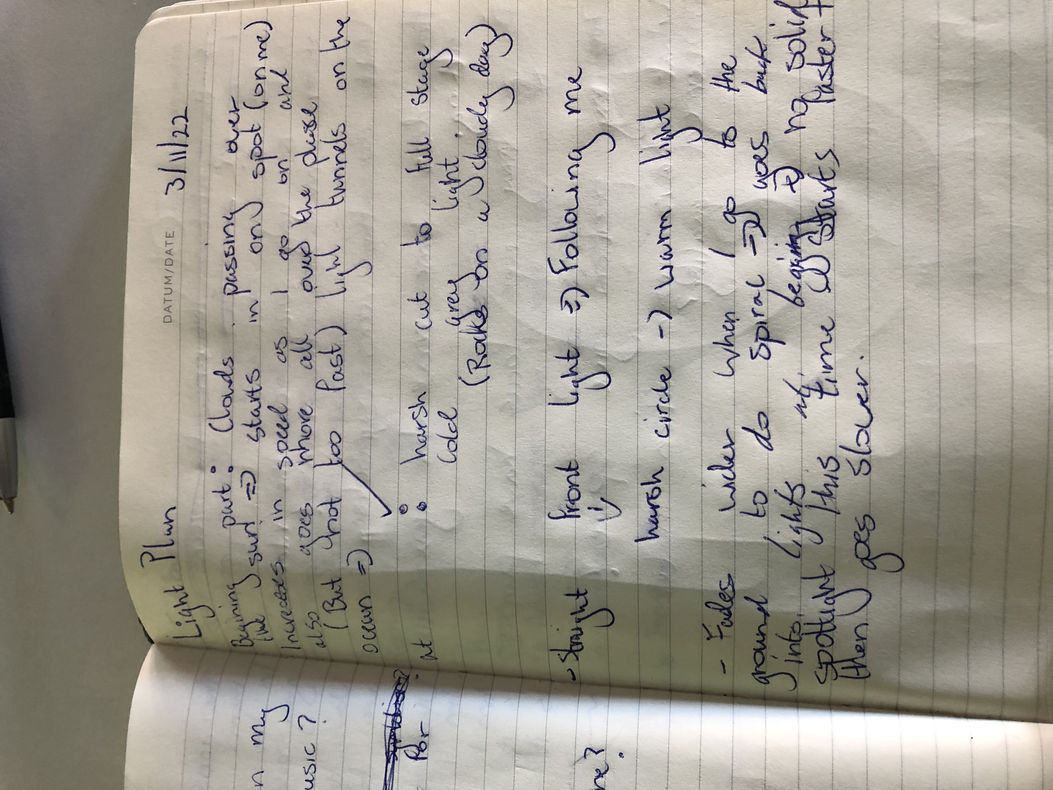 n my
usic ?
Par
ne?
DATUM/DATE 3/11/22
Light Plan
Begining part: Clouds passing over
the sun! => starts in only spot (on me)
Increases in speed as I go on and
also goes more all over the place
(But not too fast) light tunnels on the
ocean =>
at : harsh cut to full stage
cold grey light.
(Rocks on a cloudy day)
- straight front light => Following me
harsh circle -> warm light
- Fades wider when I go to the
ground to do spiral => goes back
into lights begining => no solid
spotlight this time starts faster +
then goes slower.